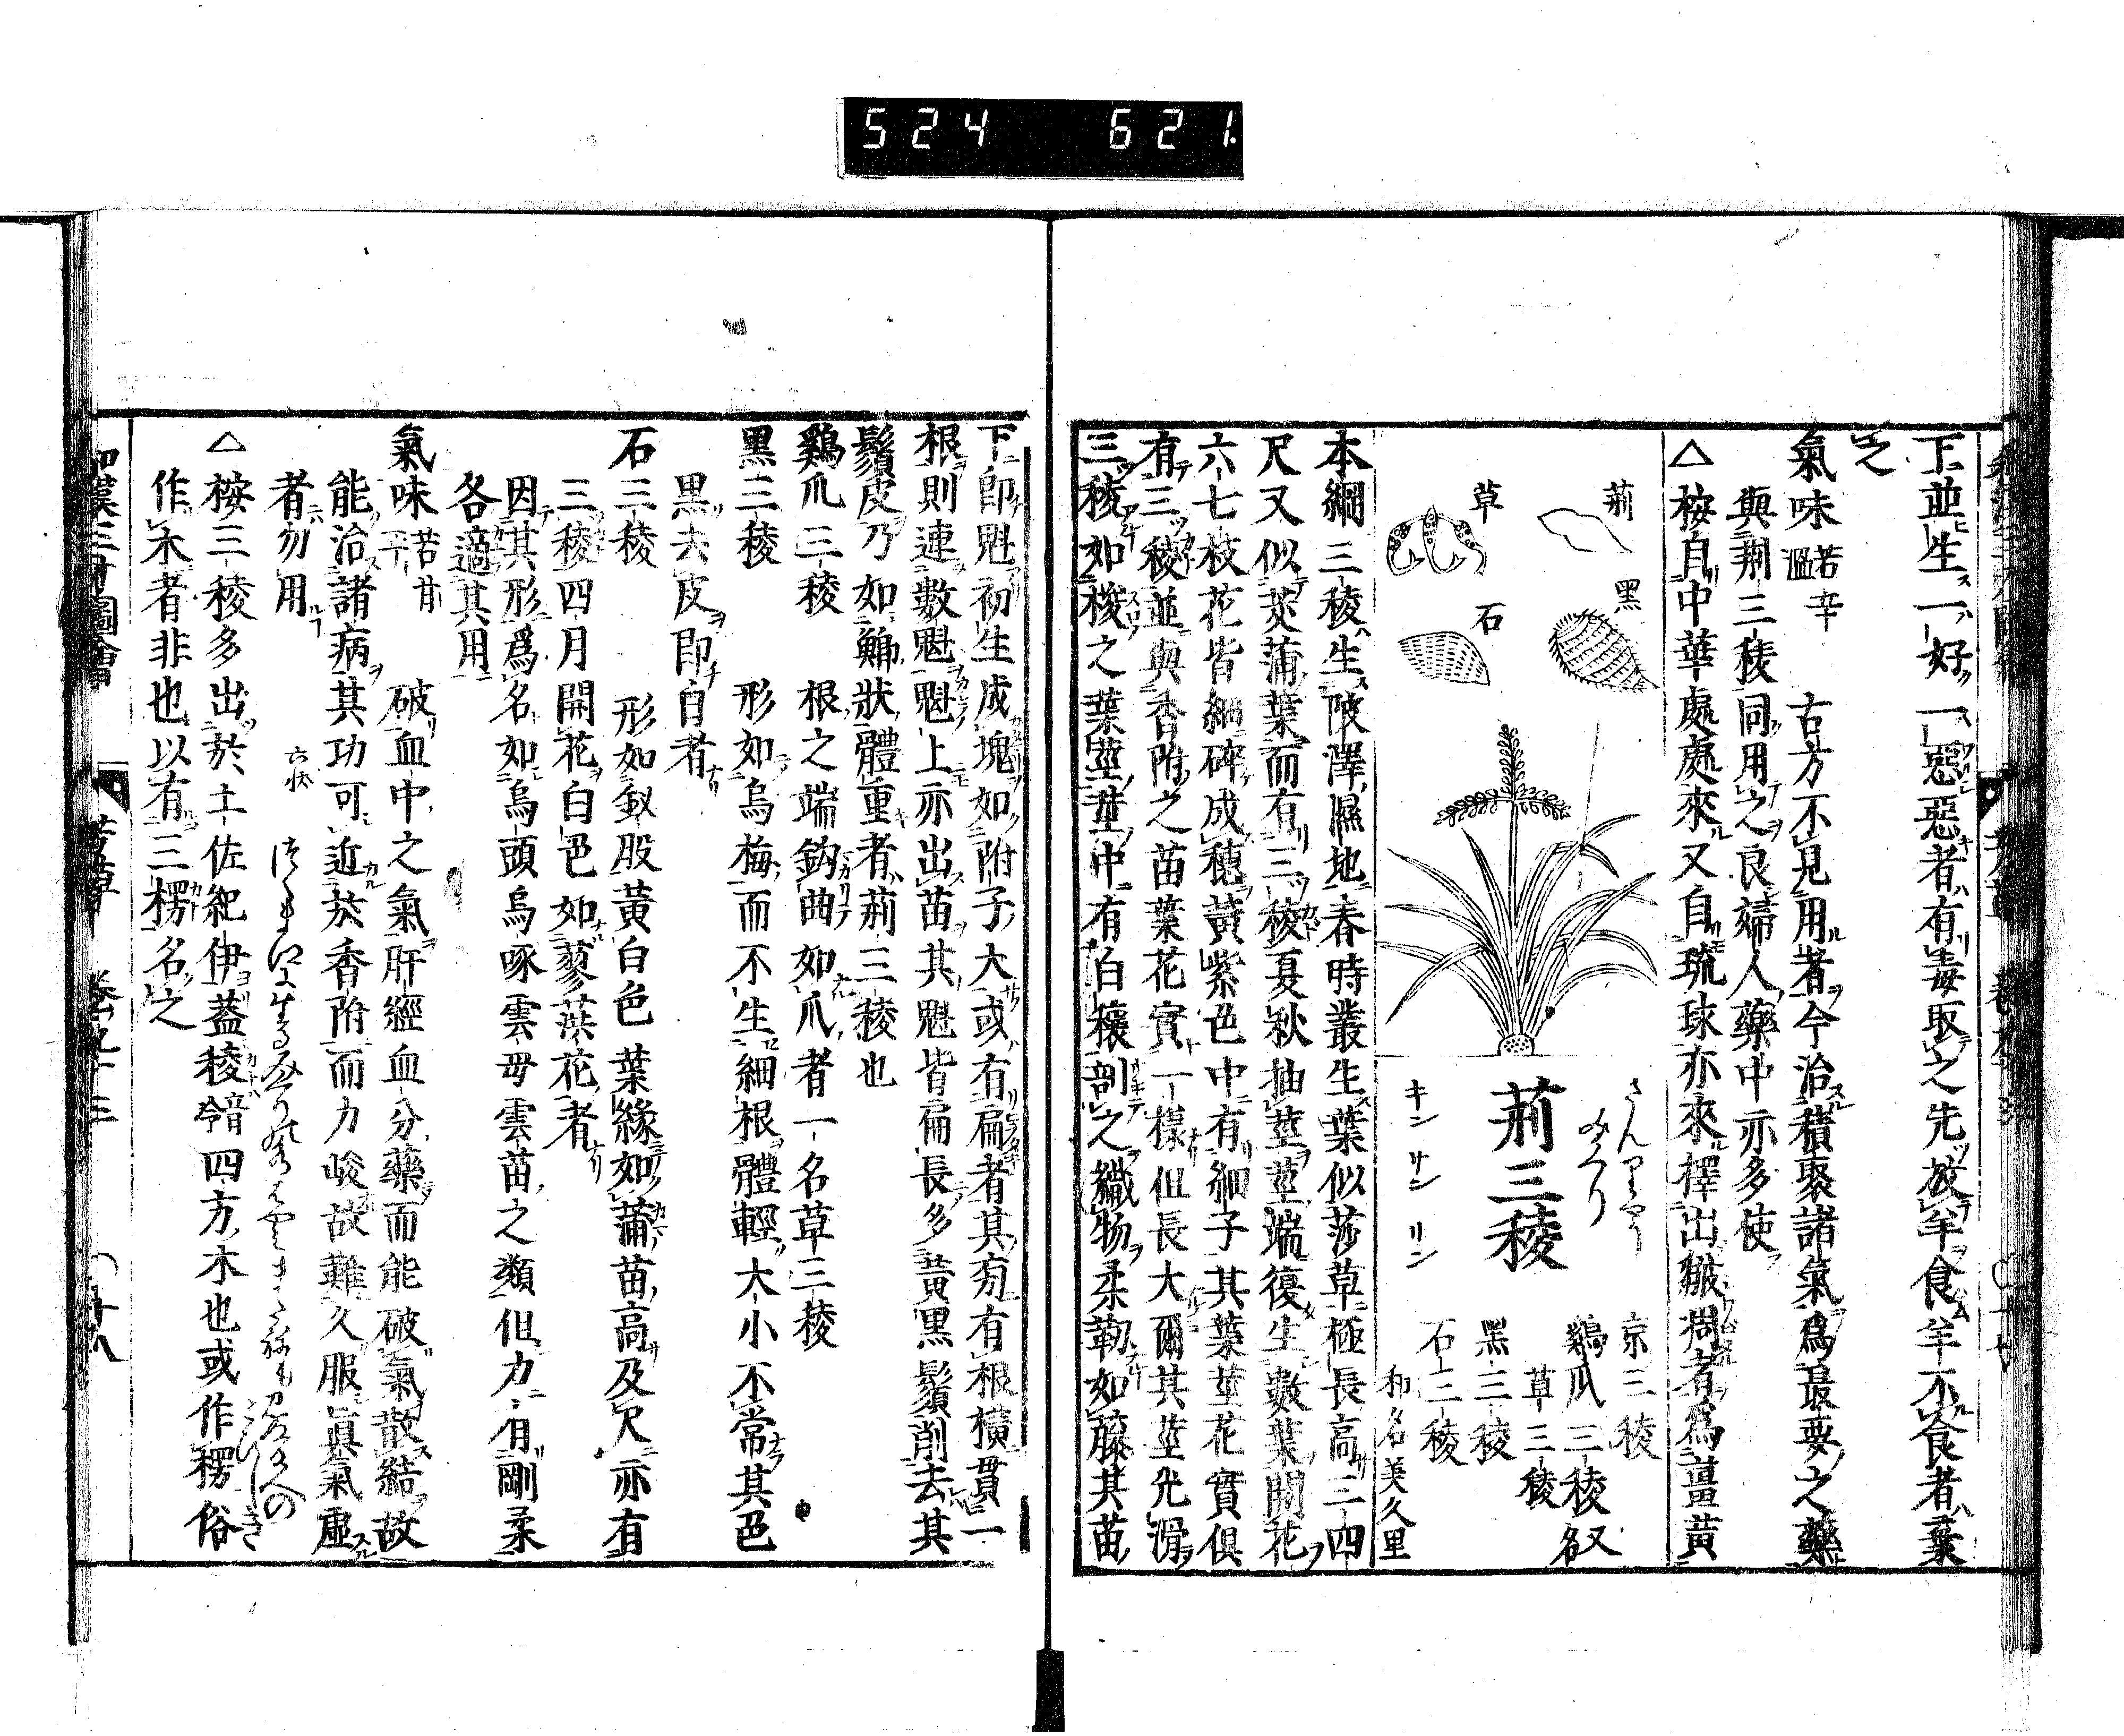 524 621.
下並生一好一惡惡者有毒取之先放羊食羊不食者棄
之
氣味苦辛溫 古方不見用者今治積聚諸氣爲最要之藥
與荊三稜同用之良婦人藥中亦多使
△按自中華處處來又自琉球亦來擇出皺凋者爲薑黃
荊
黑
草
石
さんりやう
みくり
荊三稜
キン サン リン
京三稜
鷄爪三稜又名
草三稜
黑三稜
石三稜
和名美久里
本綱三稜生陂澤濕地春時叢生葉似莎草極長高三四
尺又似茭蒲葉而有三稜夏秋抽莖莖端復生數葉開花
六七枝花皆細碎成穗黃紫色中有細子其葉莖花實俱
有三稜並與香附之苗葉花實一樣但長大爾其莖光滑
三稜如椶之葉莖莖中有白穰剖之織物柔靭如藤其苗
下即魁初生成塊如附子大或有扁者其旁有根橫貫一
根則連數魁魁上亦出苗其魁皆扁長多黃黑鬚削去其
鬚皮乃如鯽狀體重者荊三稜也
鷄爪三稜 根之端鈎曲如爪者一名草三稜
黑三稜 形如烏梅而不生細根體輕大小不常其色
黑去皮即白者
石三稜 形如釵股黃白色葉緣如蒲苗高及尺亦有
三稜四月開花白色如蓼葓花者
因其形爲名如烏頭烏啄雲母雲苗之類但力有剛柔
各適其用
氣味苦甘平 破血中之氣肝經血分藥而能破氣散結故
能治諸病其功可近於香附而力峻故難久服眞氣虛
者勿用
六帖
△按三稜多出於土佐紀伊蓋稜音令四方木也或作楞俗
作木者非也以有三楞名之
和漢三才圖會 芳草 卷九十三 〇十八